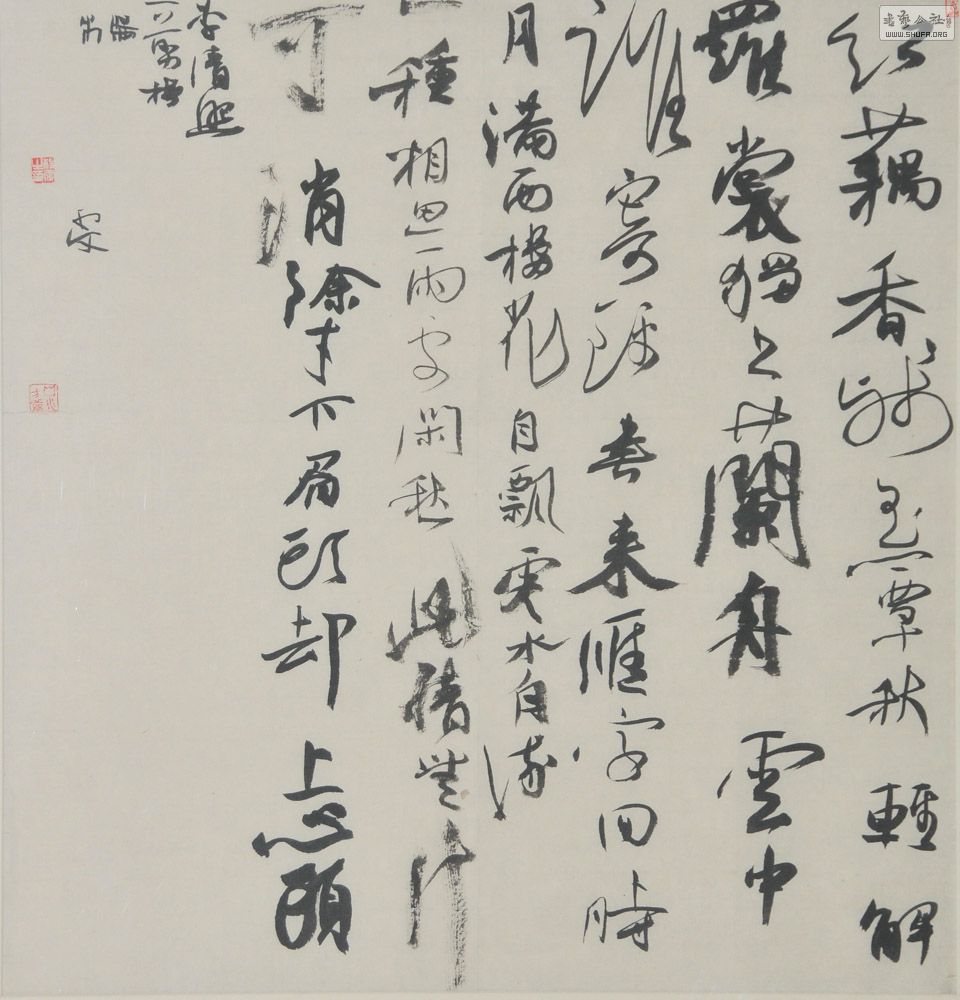 红藕香殘玉簟秋輕解
羅裳獨上蘭舟雲中
誰寄錦書来雁字回時
月滿西樓花自飄零水自流
一種相思一兩處閑愁此情無計
可消除才下眉頭却上心頭
李清照
一剪梅
書法公社
WWW.SHUFA.ORG